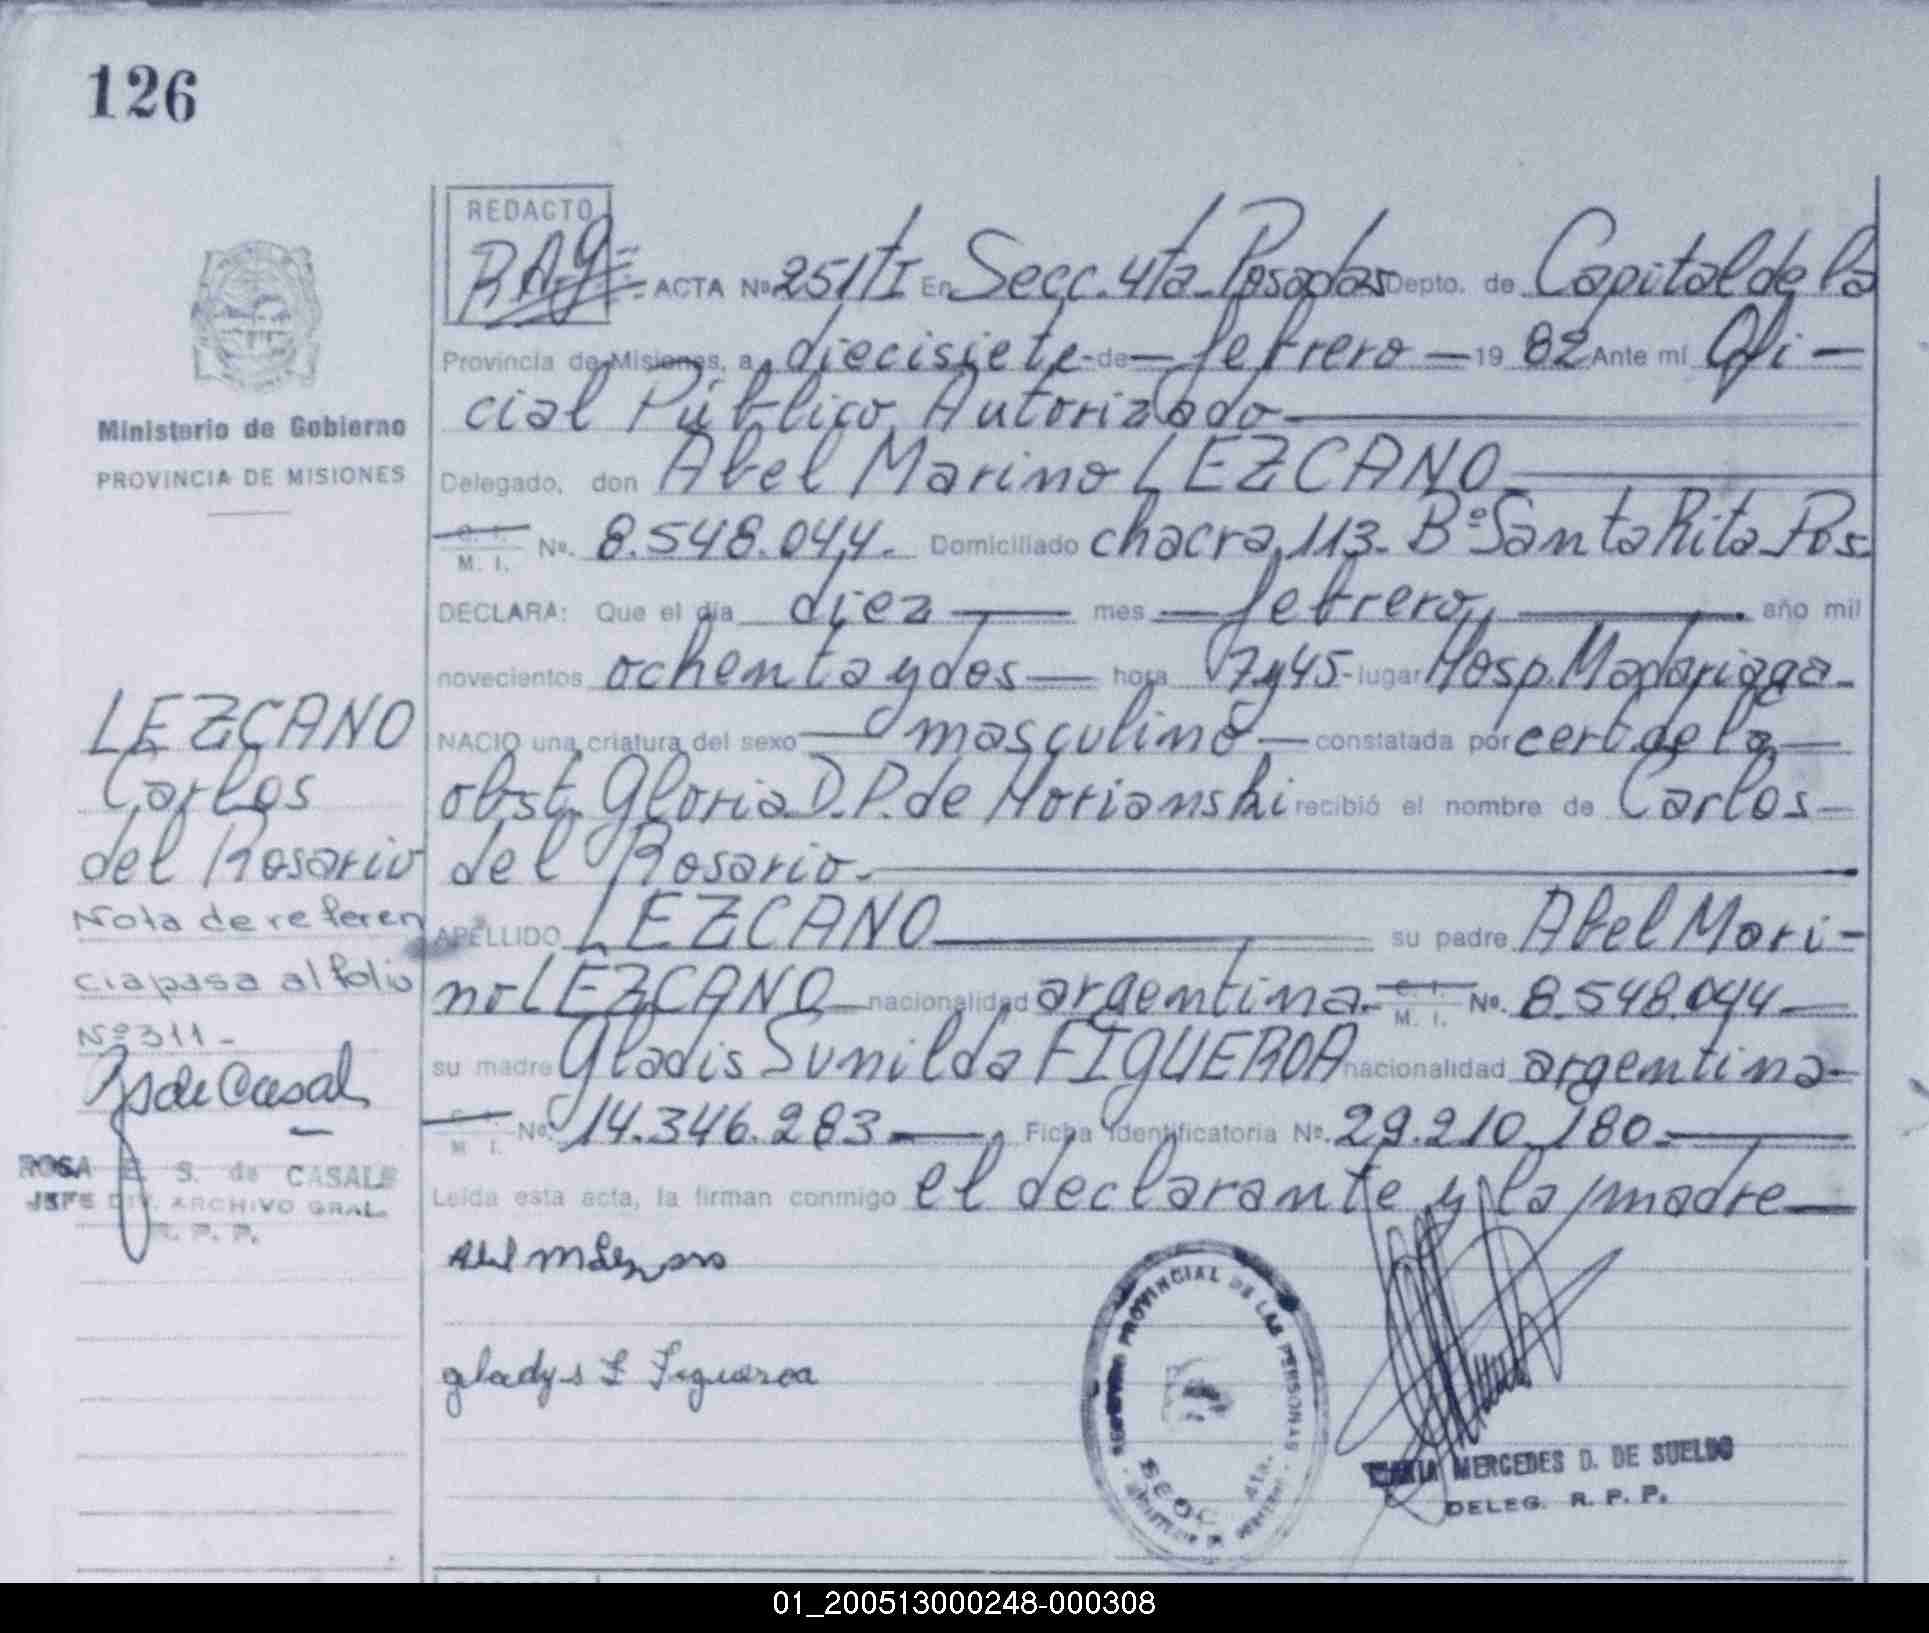 126
REDACTO
RAG= ACTA Nº 251/TI En Secc. 4ta Posadas Depto. de Capital de la
Provincia de Misiones, a diecisiete de febrero 19 82 Ante mí Ofi-
cial Público Autorizado
Delegado, don Abel Marino LEZCANO
C. I. M. I. Nº. 8.548.044. Domiciliado chacra 113. Bº Santa Rita Pos.
DECLARA: Que el día diez mes febrero año mil
novecientos ochenta y dos hora 7 y 45 lugar Hosp. Madariaga
NACIO una criatura del sexo masculino constatada por cert. de la
obst. Gloria D. P. de Morianski recibió el nombre de Carlos
del Rosario.
APELLIDO LEZCANO su padre Abel Mari-
no LEZCANO nacionalidad argentina. C. I. M. I. Nº. 8.548.044
su madre Gladis Sunilda FIGUEROA nacionalidad argentina
M I. Nº. 14.346.283 Ficha Identificatoria Nº. 29.210.180.
Leída esta acta, la firman conmigo el declarante y la madre
gladys F Figueroa
REGISTRO PROVINCIAL DE LAS PERSONAS
SECC 4ta.
MARIA MERCEDES D. DE SUELDO
DELEG. R. P. P.
Ministerio de Gobierno
PROVINCIA DE MISIONES
LEZCANO
Carlos
del Rosario
Nota de referen
cia pasa al folio
Nº 311-
RSdeCasal
ROSA E. S. de CASALS
JEFE DIV. ARCHIVO GRAL.
R. P. P.
01_200513000248-000308